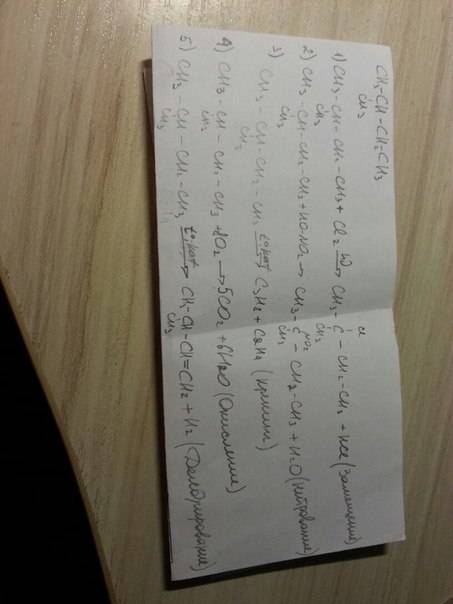 CH3-CH-CH2-CH3
CH3
1) CH3-CH-CH2-CH3 + Cl2 hν→ CH3-C-CH2-CH3 + HCl (Замещение)
CH3 Cl CH3
2) CH3-CH-CH2-CH3 + HO-NO2 → CH3-C-CH2-CH3 + H2O (нитрование)
CH3 NO2 CH3
3) CH3-CH-CH2-CH3 t°,kat→ C3H6 + C2H4 (крекинг)
CH3
4) CH3-CH-CH2-CH3 + 8O2 → 5CO2 + 6H2O (Окисление)
CH3
5) CH3-CH-CH2-CH3 t°,kat→ CH3-CH-CH=CH2 + H2 (Дегидрирование)
CH3 CH3